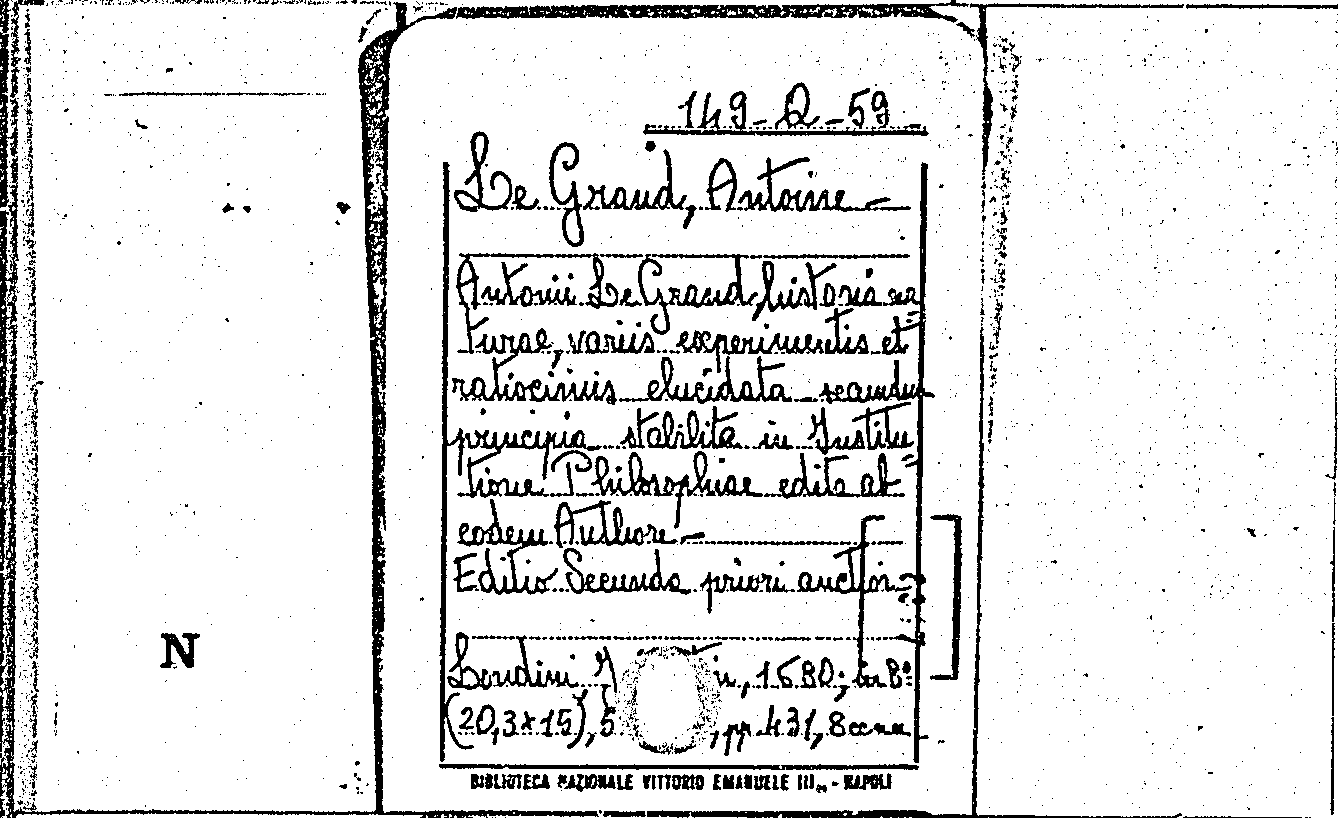 149-Q-59
Le Grand, Antoine -
Antonii Le Grand, historia na=
turae, variis experimentis et
ratiociniis elucidata secundum
principia stabilita in Institu=
tione Philosophiae edita ab
eodem Authore -
Editio Secunda priori auctior
Londini, 1680; in 8°
(20,3x15), 5 , pp. 431, 8 cc nn
N
BIBLIOTECA NAZIONALE VITTORIO EMANUELE III - NAPOLI